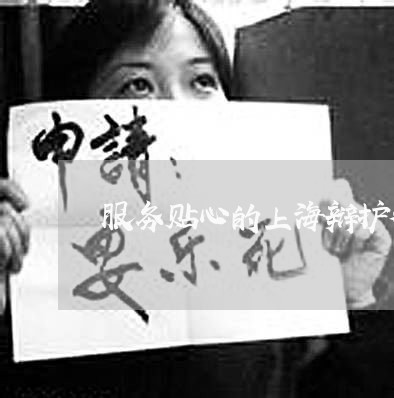 申請：
服务贴心的上海辩护
安乐死